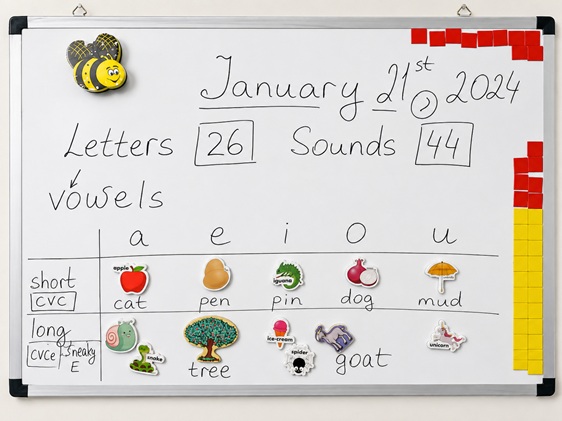 January 21st 2024
Letters 26 Sounds 44
vowels
a e i o u
apple iguana
short cat pen pin dog mud
CVC
long ice-cream unicorn
CVCe Sneaky E snake spider
tree goat